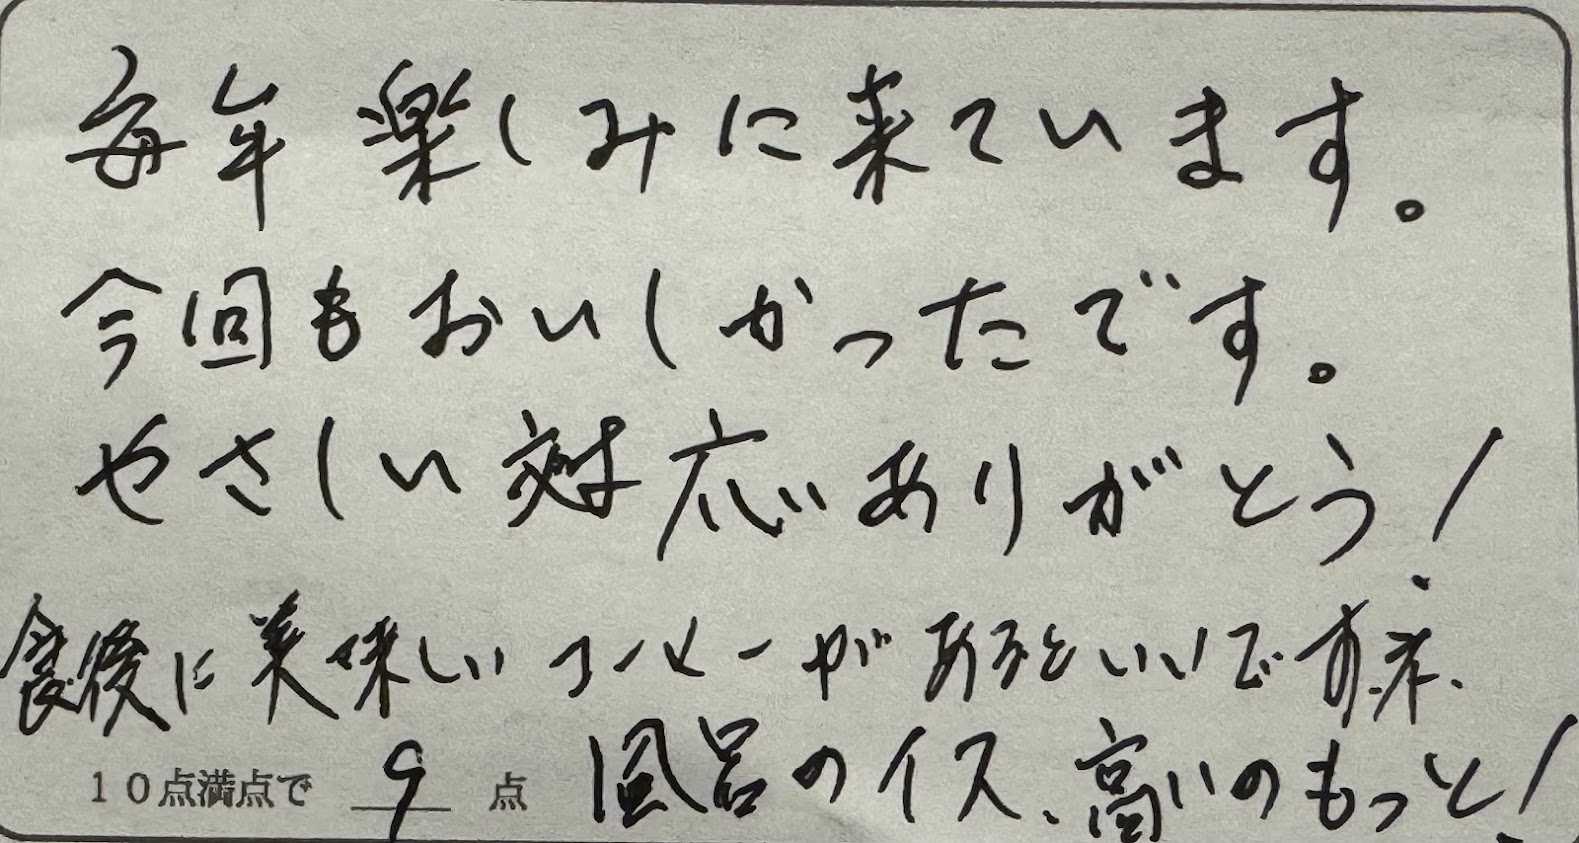 毎年楽しみに来ています。
今回もおいしかったです。
やさしい対応ありがとう！
食後に美味しいコーヒーがあるといいですネ。
10点満点で 9 点 風呂のイス、高いのもっと！